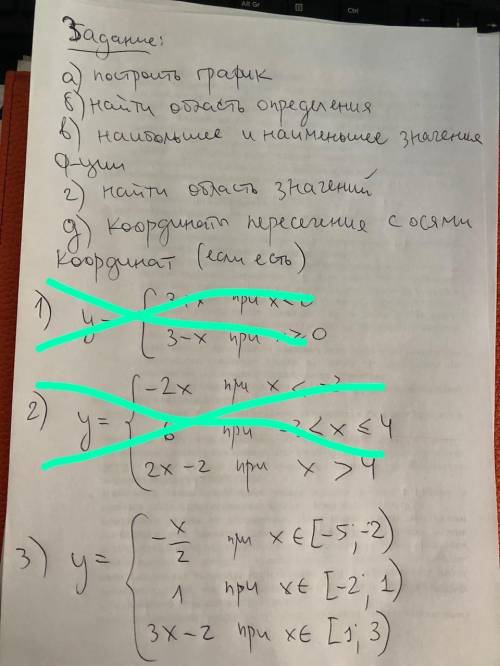 Задание:
а) построить график
б) найти область определения
в) наибольшее и наименьшее значения
ф-ции
г) найти область значений
д) координаты пересечения с осями
координат (если есть)
1) y = { 3+x при x<0
3-x при x≥0
2) y = { -2x при x <
6 при <x≤4
2x-2 при x>4
3) y = { -x/2 при x∈[-5;-2)
1 при x∈[-2;1)
3x-2 при x∈[1;3)
Alt Gr
Ctrl